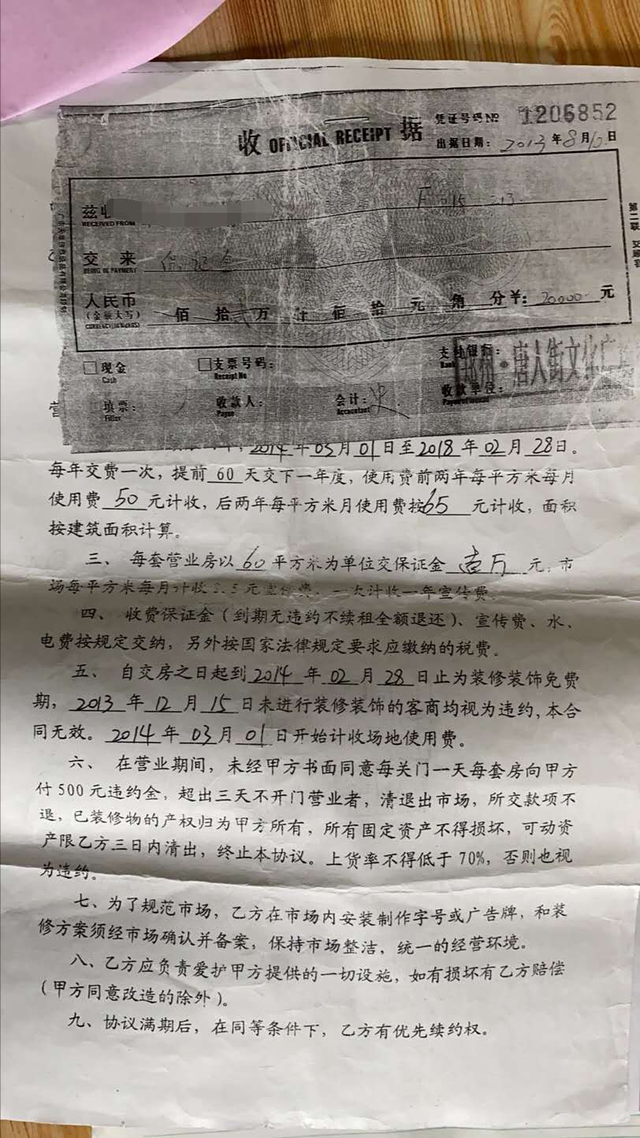 凭证号码№ 1206852
收 OFFICIAL RECEIPT 据
出据日期：2013年8月10日
兹收
RECEIVED FROM
交来
BEING IN PAYMENT
人民币 佰 拾 贰 万 仟 佰 拾 元 角 分￥：20000 元
(金额大写)
CURRENCY(IN WORDS)
第二联
□现金 □支票号码：
Cash
唐人街文化广
填票： 收款人： 会计： 收款单位：
Filler Payee Accountant
2014年03月01日至2018年02月28日。
每年交费一次，提前60天交下一年度，使用费前两年每平方米每月
使用费50元计收，后两年每平方米月使用费按65元计收，面积
按建筑面积计算。
三、每套营业房以60平方米为单位交保证金壹万元，市
场每平方米每月计收 元宣传费，一次计收一年宣传费。
四、收费保证金（到期无违约不续租全额退还）、宣传费、水、
电费按规定交纳，另外按国家法律规定要求应缴纳的税费。
五、自交房之日起到2014年02月28日止为装修装饰免费
期，2013年12月15日未进行装修装饰的客商均视为违约，本合
同无效。2014年03月01日开始计收场地使用费。
六、在营业期间，未经甲方书面同意每关门一天每套房向甲方
付500元违约金，超出三天不开门营业者，清退出市场，所交款项不
退，已装修物的产权归为甲方所有，所有固定资产不得损坏，可动资
产限乙方三日内清出，终止本协议。上货率不得低于70%，否则也视
为违约。
七、为了规范市场，乙方在市场内安装制作字号或广告牌，和装
修方案须经市场确认并备案，保持市场整洁，统一的经营环境。
八、乙方应负责爱护甲方提供的一切设施，如有损坏有乙方赔偿
（甲方同意改造的除外）。
九、协议满期后，在同等条件下，乙方有优先续约权。